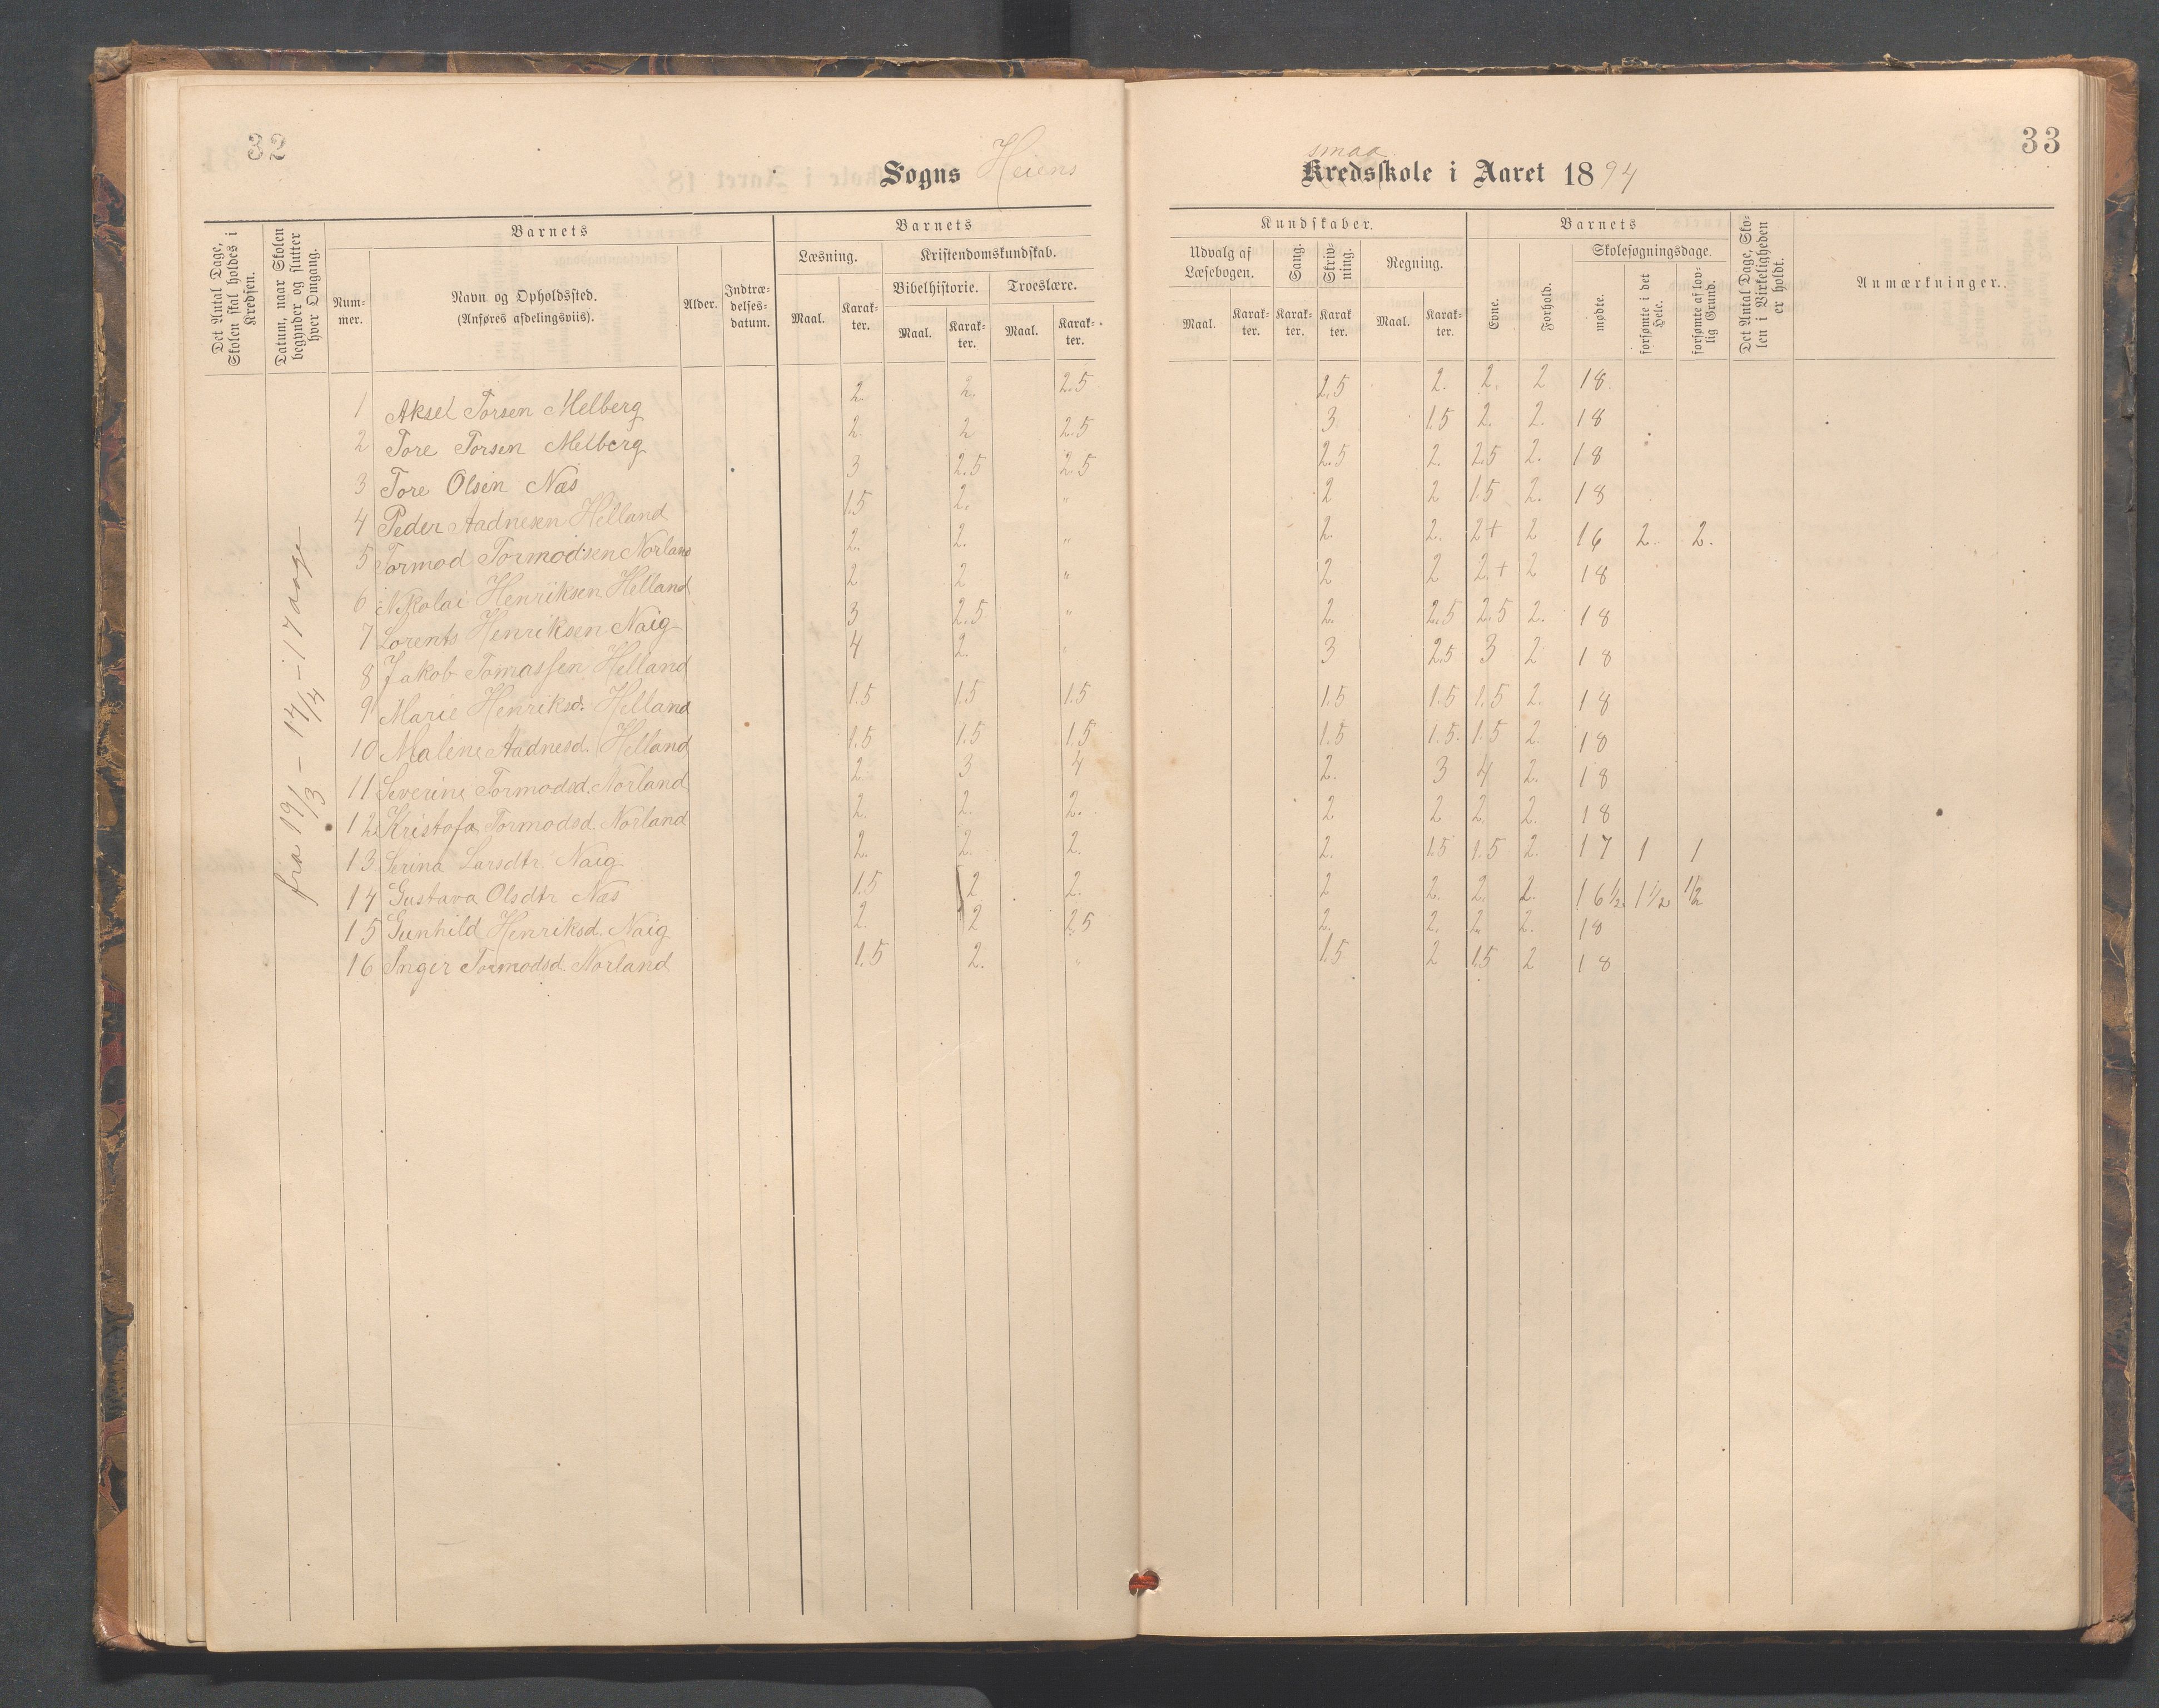 32
Sogns Heiens
smaa
Kredsskole i Aaret 1894
33
Det Antal Dage, Skolen skal holdes i Kredsen.
Datum, naar Skolen begynder og slutter hver Omgang.
Barnets
Num-mer.
Navn og Opholdssted.
(Anføres afdelingsviis).
Alder.
Indtræ-delses-datum.
Barnets
Læsning.
Kristendomskundskab.
Bibelhistorie.
Troeslære.
Maal.
Karak-ter.
Maal.
Karak-ter.
Maal.
Karak-ter.
Kundskaber.
Udvalg af Læsebogen.
Sang.
Skriv-ning.
Regning.
Maal.
Karak-ter.
Karak-ter.
Karak ter.
Maal.
Karak-ter.
Barnets
Evne.
Forhold.
Skolesøgningsdage.
mødte.
forsømte i det Hele.
forsømte af lov-lig Grund.
Det Antal Dage, Sko-len i Virkeligheden er holdt.
Anmærkninger.
fra 19/3 – 14/4 – 17 dage
1 Aksel Torsen Melberg 2. 2. 2.5 2.5 2. 2. 2 18.
2 Tore Torsen Melberg 2. 2 2.5 3. 1.5 2. 2. 18
3 Tore Olsen Næs 3 2.5 2.5 2.5 2. 2.5 2. 18
4 Peder Aadnesen Helland 1.5 2. " 2 2 1.5 2. 18
5 Tormod Tormodsen Norland 2. 2. " 2. 2. 2+ 2 16 2. 2.
6 Nikolai Henriksen Helland 2 2 " 2 2 2.+ 2 18
7 Lorents Henriksen Naig 3 2.5 " 2. 2.5 2.5 2. 18
8 Jakob Tomassen Helland 4 2. " 3 2.5 3 2 18
9 Marie Henriksd. Helland 1.5 1.5 1.5 1.5 1.5 1.5 2. 18
10 Maline Aadnesd. Helland 1.5 1.5 1.5 1.5 1.5. 1.5 2. 18
11 Severine Tormodsd. Norland 2. 3 4 2. 3 4 2. 18
12 Kristofa Tormodsd. Norland 2. 2. 2. 2 2 2. 2. 18
13 Serina Larsdtr. Naig 2. 2. 2. 2. 1.5 1.5 2. 17 1 1
14 Gustava Olsdtr Næs 1.5 2 2. 2 2. 2. 2. 16½ 1½ ½
15 Gunhild Henriksd. Naig 2. 2 2.5 2. 2. 2 2. 18
16 Inger Tormodsd. Norland 1.5 2. " 1.5 2 1.5 2 18